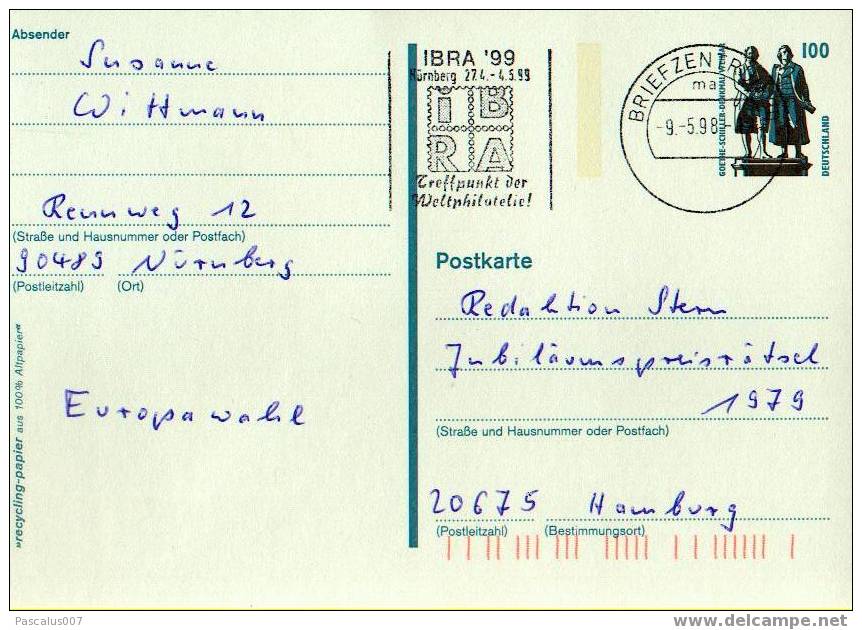 Absender
Susanne
Wittmann
Rennweg 12
(Straße und Hausnummer oder Postfach)
90489 Nürnberg
(Postleitzahl) (Ort)
»recycling-papier aus 100% Altpapier«
Europawahl
IBRA '99
Nürnberg 27.4.-4.5.99
iB
RA
Treffpunkt der
Weltphilatelie!
BRIEFZENTR
ma
-9.-5.98
GOETHE-SCHILLER-DENKMAL
100
DEUTSCHLAND
Postkarte
Redaktion Stern
Jubiläumspreisrätsel
1979
(Straße und Hausnummer oder Postfach)
20675 Hamburg
(Postleitzahl) (Bestimmungsort)
Pascalus007
www.delcampe.net